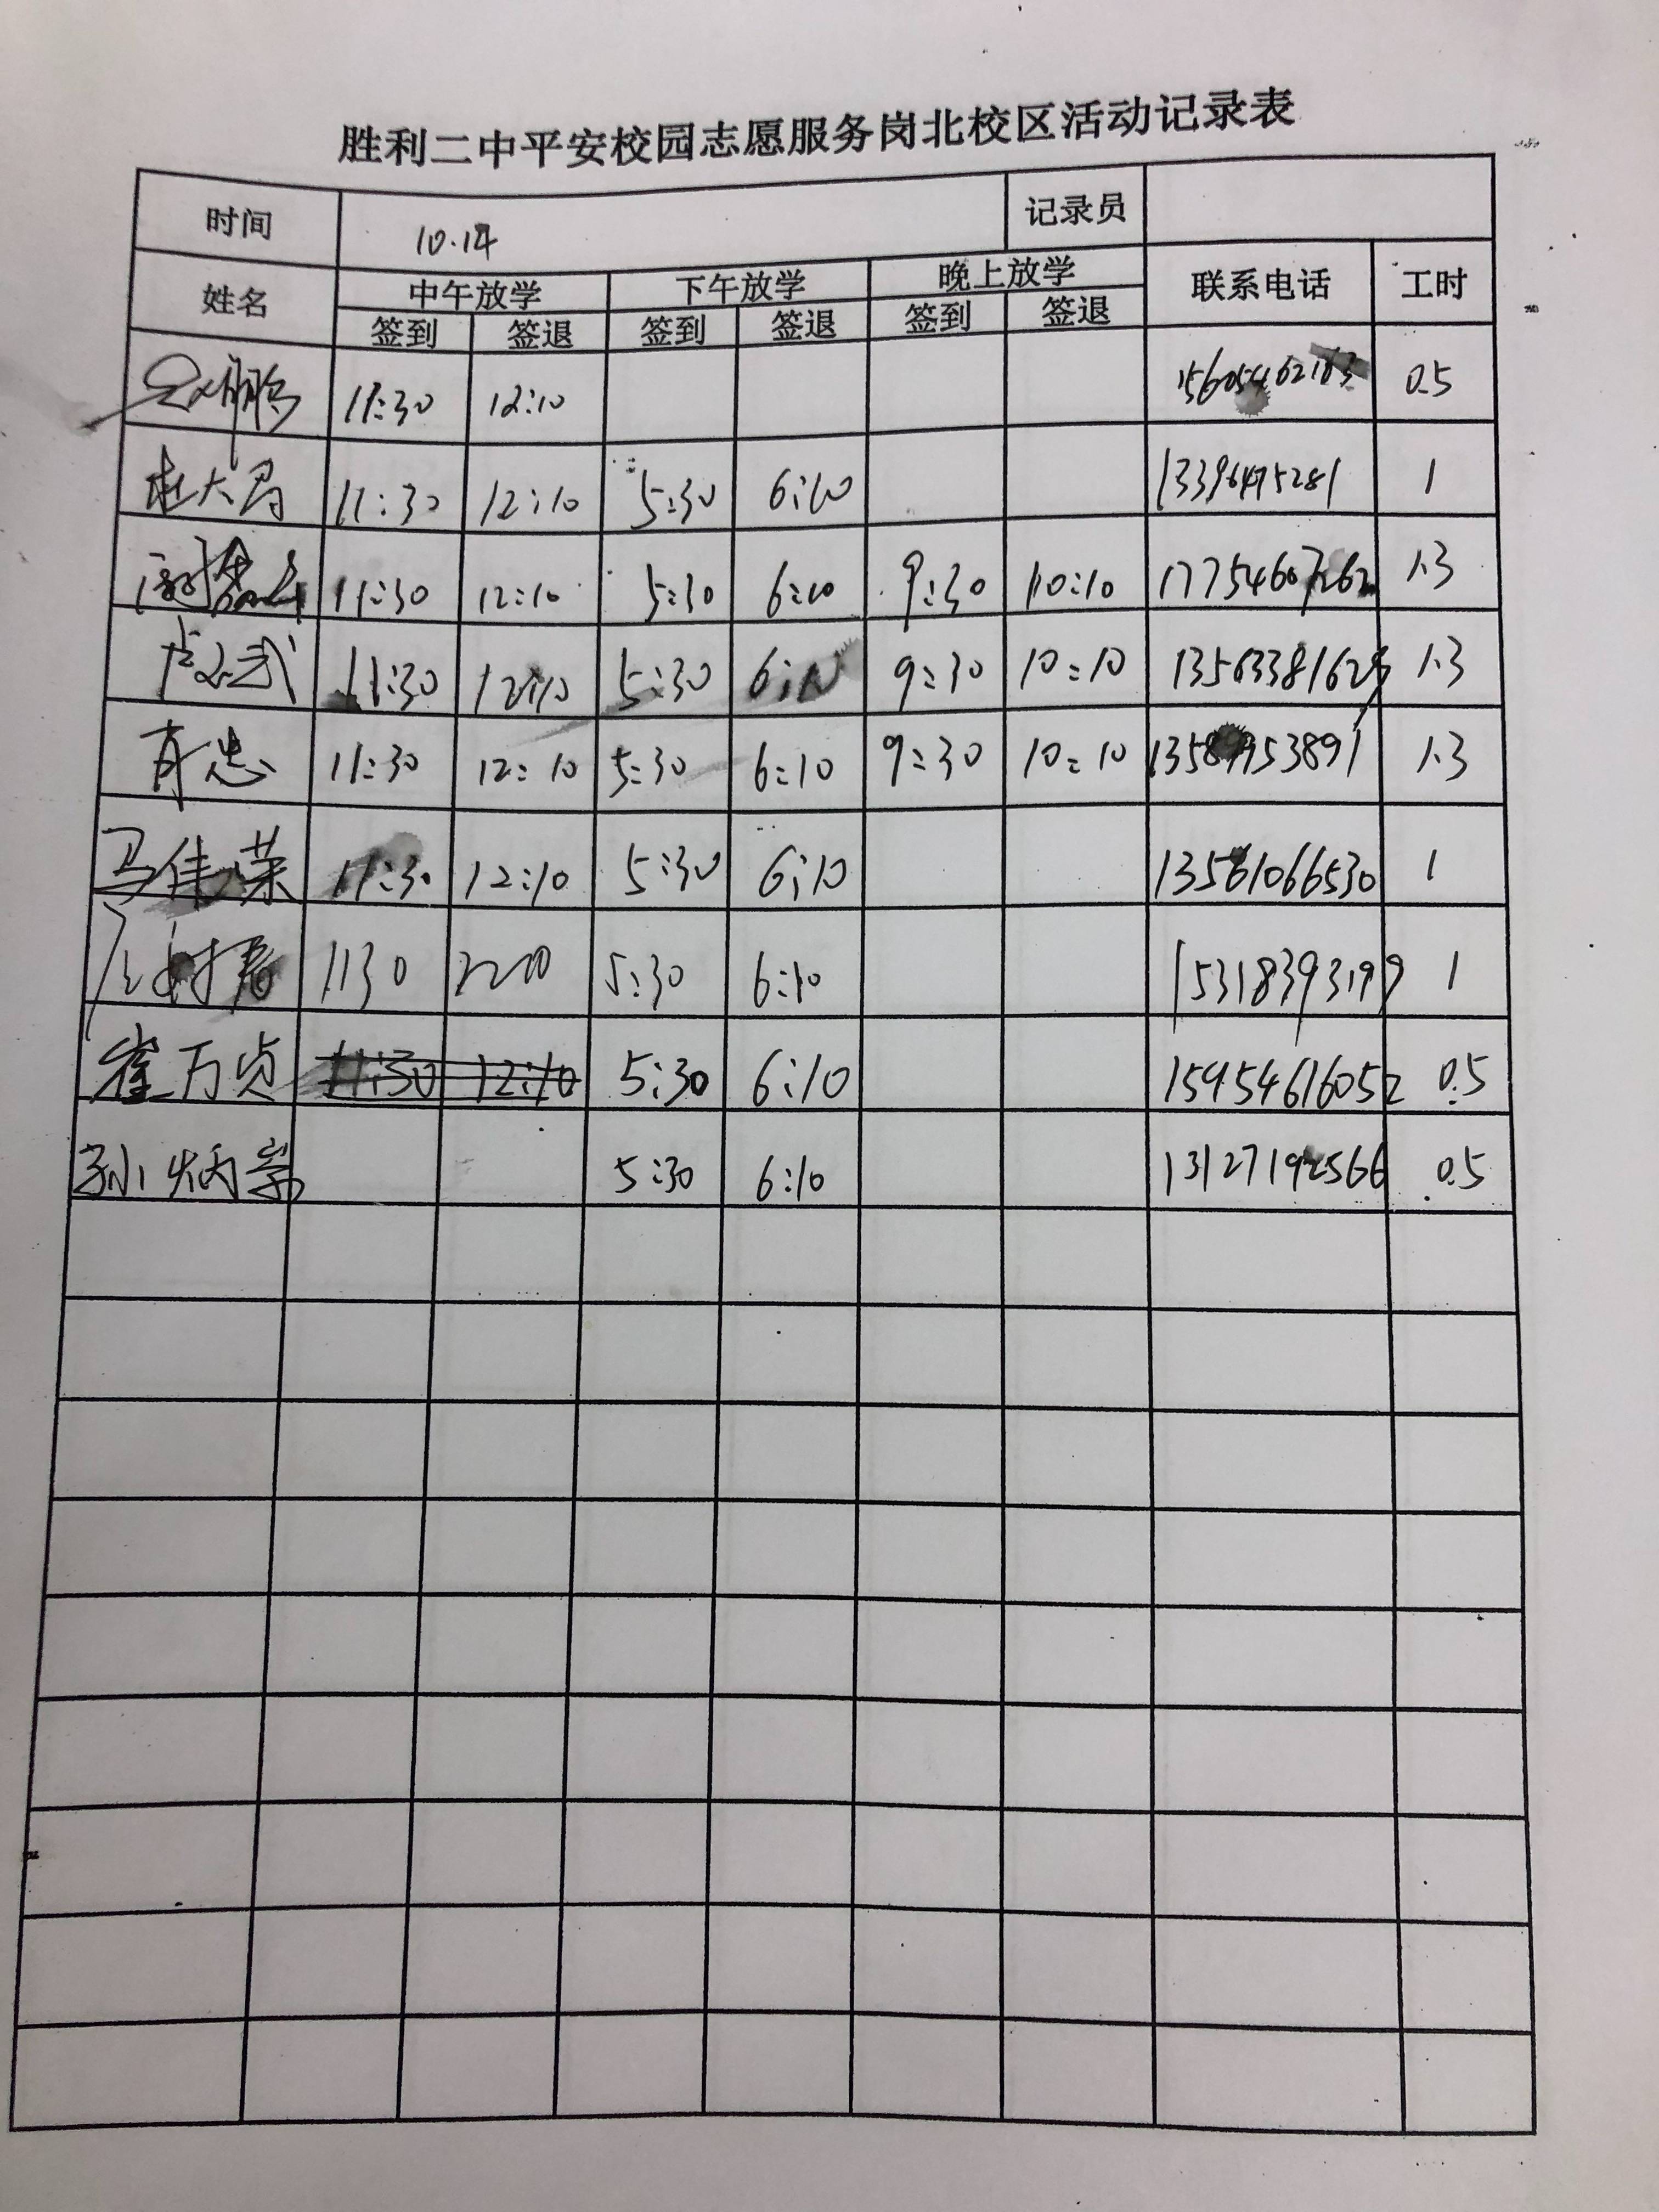 胜利二中平安校园志愿服务岗北校区活动记录表
时间 10.14 记录员
姓名 中午放学 下午放学 晚上放学 联系电话 工时
签到 签退 签到 签退 签到 签退
11:30 12:10 15605462183 0.5
杜大局 11:30 12:10 5:30 6:10 1
11:30 12:10 5:30 6:10 9:30 10:10 1.3
卢文武 11:30 12:10 5:30 6:10 9:30 10:10 1.3
11:30 12:10 5:30 6:10 9:30 10:10 1.3
马佳荣 11:30 12:10 5:30 6:10 13561066530 1
1130 5:30 6:10 15318393199 1
崔万贞 11:30 12:10 5:30 6:10 15954616052 0.5
孙炳 5:30 6:10 13127192566 0.5